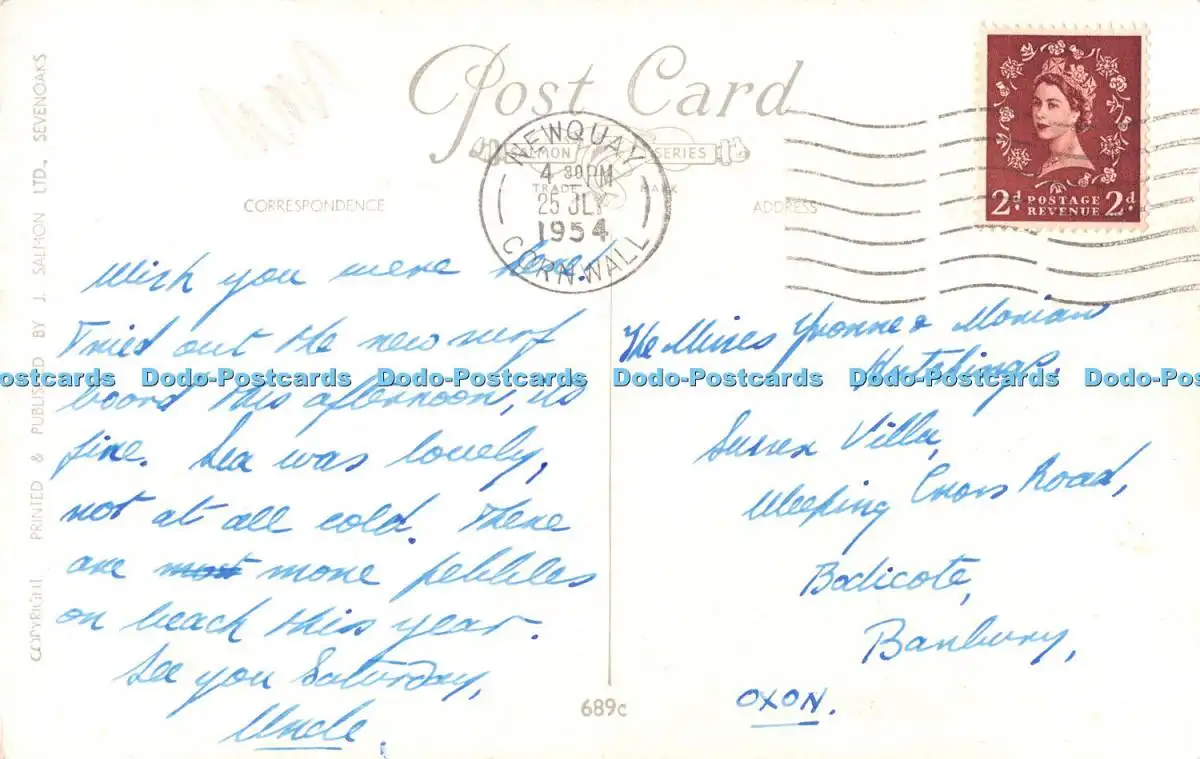 Post Card
SALMON SERIES
TRADE MARK
CORRESPONDENCE
ADDRESS
NEWQUAY
4 30PM
25 JLY
1954
CORNWALL
2d POSTAGE REVENUE 2d
COPYRIGHT PRINTED & PUBLISHED BY J. SALMON LTD., SEVENOAKS
Wish you were here!
Tried out the new surf
board this afternoon, its
fine. Sea was lovely,
not at all cold. There
are most more pebbles
on beach this year.
See you Saturday,
Uncle.
The Misses Yvonne & Marian
Hutchings.
Sussex Villa,
Weeping Cross Road,
Bodicote,
Banbury,
OXON.
689c
Dodo-Postcards Dodo-Postcards Dodo-Postcards Dodo-Postcards Dodo-Postcards Dodo-Postcards